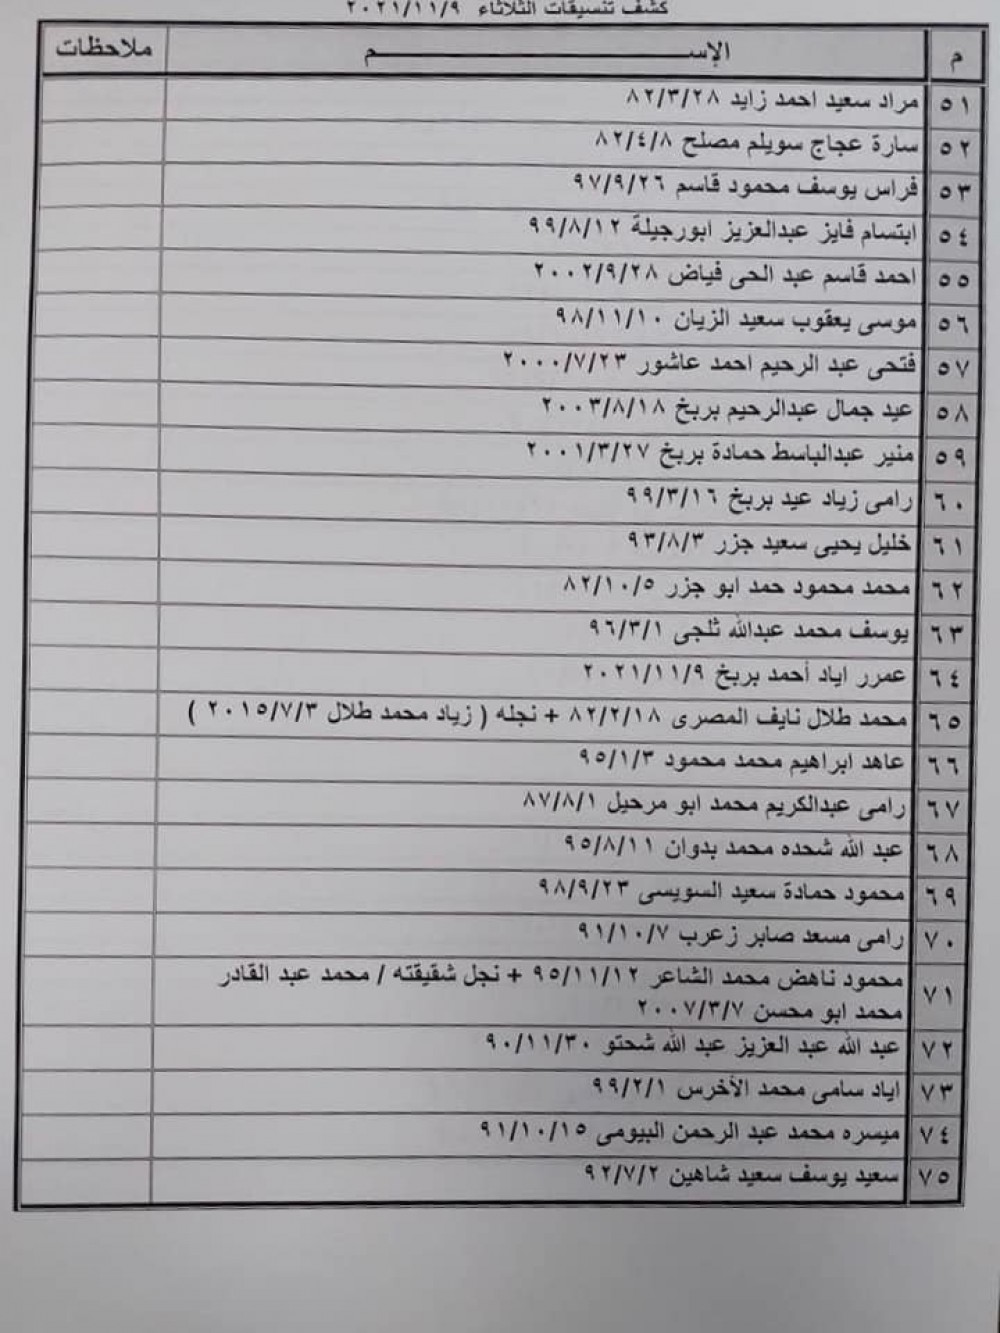 كشف تنسيقات الثلاثاء ٢٠٢١/١١/٩
م الإســـــــــم ملاحظات
٥١ مراد سعيد احمد زايد ٨٢/٣/٢٨
٥٢ سارة عجاج سويلم مصلح ٨٢/٤/٨
٥٣ فراس يوسف محمود قاسم ٩٧/٩/٢٦
٥٤ ابتسام فايز عبدالعزيز ابورجيلة ٩٩/٨/١٢
٥٥ احمد قاسم عبد الحى فياض ٢٠٠٢/٩/٢٨
٥٦ موسى يعقوب سعيد الزيان ٩٨/١١/١٠
٥٧ فتحى عبد الرحيم احمد عاشور ٢٠٠٠/٧/٢٣
٥٨ عيد جمال عبدالرحيم بربخ ٢٠٠٣/٨/١٨
٥٩ منير عبدالباسط حمادة بربخ ٢٠٠١/٣/٢٧
٦٠ رامى زياد عيد بربخ ٩٩/٣/١٦
٦١ خليل يحيى سعيد جزر ٩٣/٨/٣
٦٢ محمد محمود حمد ابو جزر ٨٢/١٠/٥
٦٣ يوسف محمد عبدالله ثلجى ٩٦/٣/١
٦٤ عمرر اياد أحمد بربخ ٢٠٢١/١١/٩
٦٥ محمد طلال نايف المصرى ٨٢/٢/١٨ + نجله ( زياد محمد طلال ٢٠١٥/٧/٣ )
٦٦ عاهد ابراهيم محمد محمود ٩٥/١/٣
٦٧ رامى عبدالكريم محمد ابو مرحيل ٨٧/٨/١
٦٨ عبد الله شحده محمد بدوان ٩٥/٨/١١
٦٩ محمود حمادة سعيد السويسى ٩٨/٩/٢٣
٧٠ رامى مسعد صابر زعرب ٩١/١٠/٧
٧١ محمود ناهض محمد الشاعر ٩٥/١١/١٢ + نجل شقيقته / محمد عبد القادر
محمد ابو محسن ٢٠٠٧/٣/٧
٧٢ عبد الله عبد العزيز عبد الله شحتو ٩٠/١١/٣٠
٧٣ اياد سامى محمد الأخرس ٩٩/٢/١
٧٤ ميسره محمد عبد الرحمن البيومى ٩١/١٠/١٥
٧٥ سعيد يوسف سعيد شاهين ٩٢/٧/٢